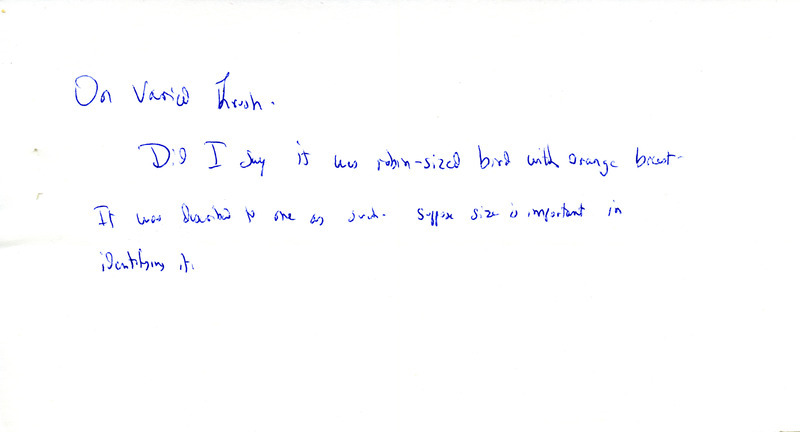 On Varied Thrush.
Did I say it was robin-sized bird with orange breast.
It was described to one as such. Suppose size is important in
identifying it.